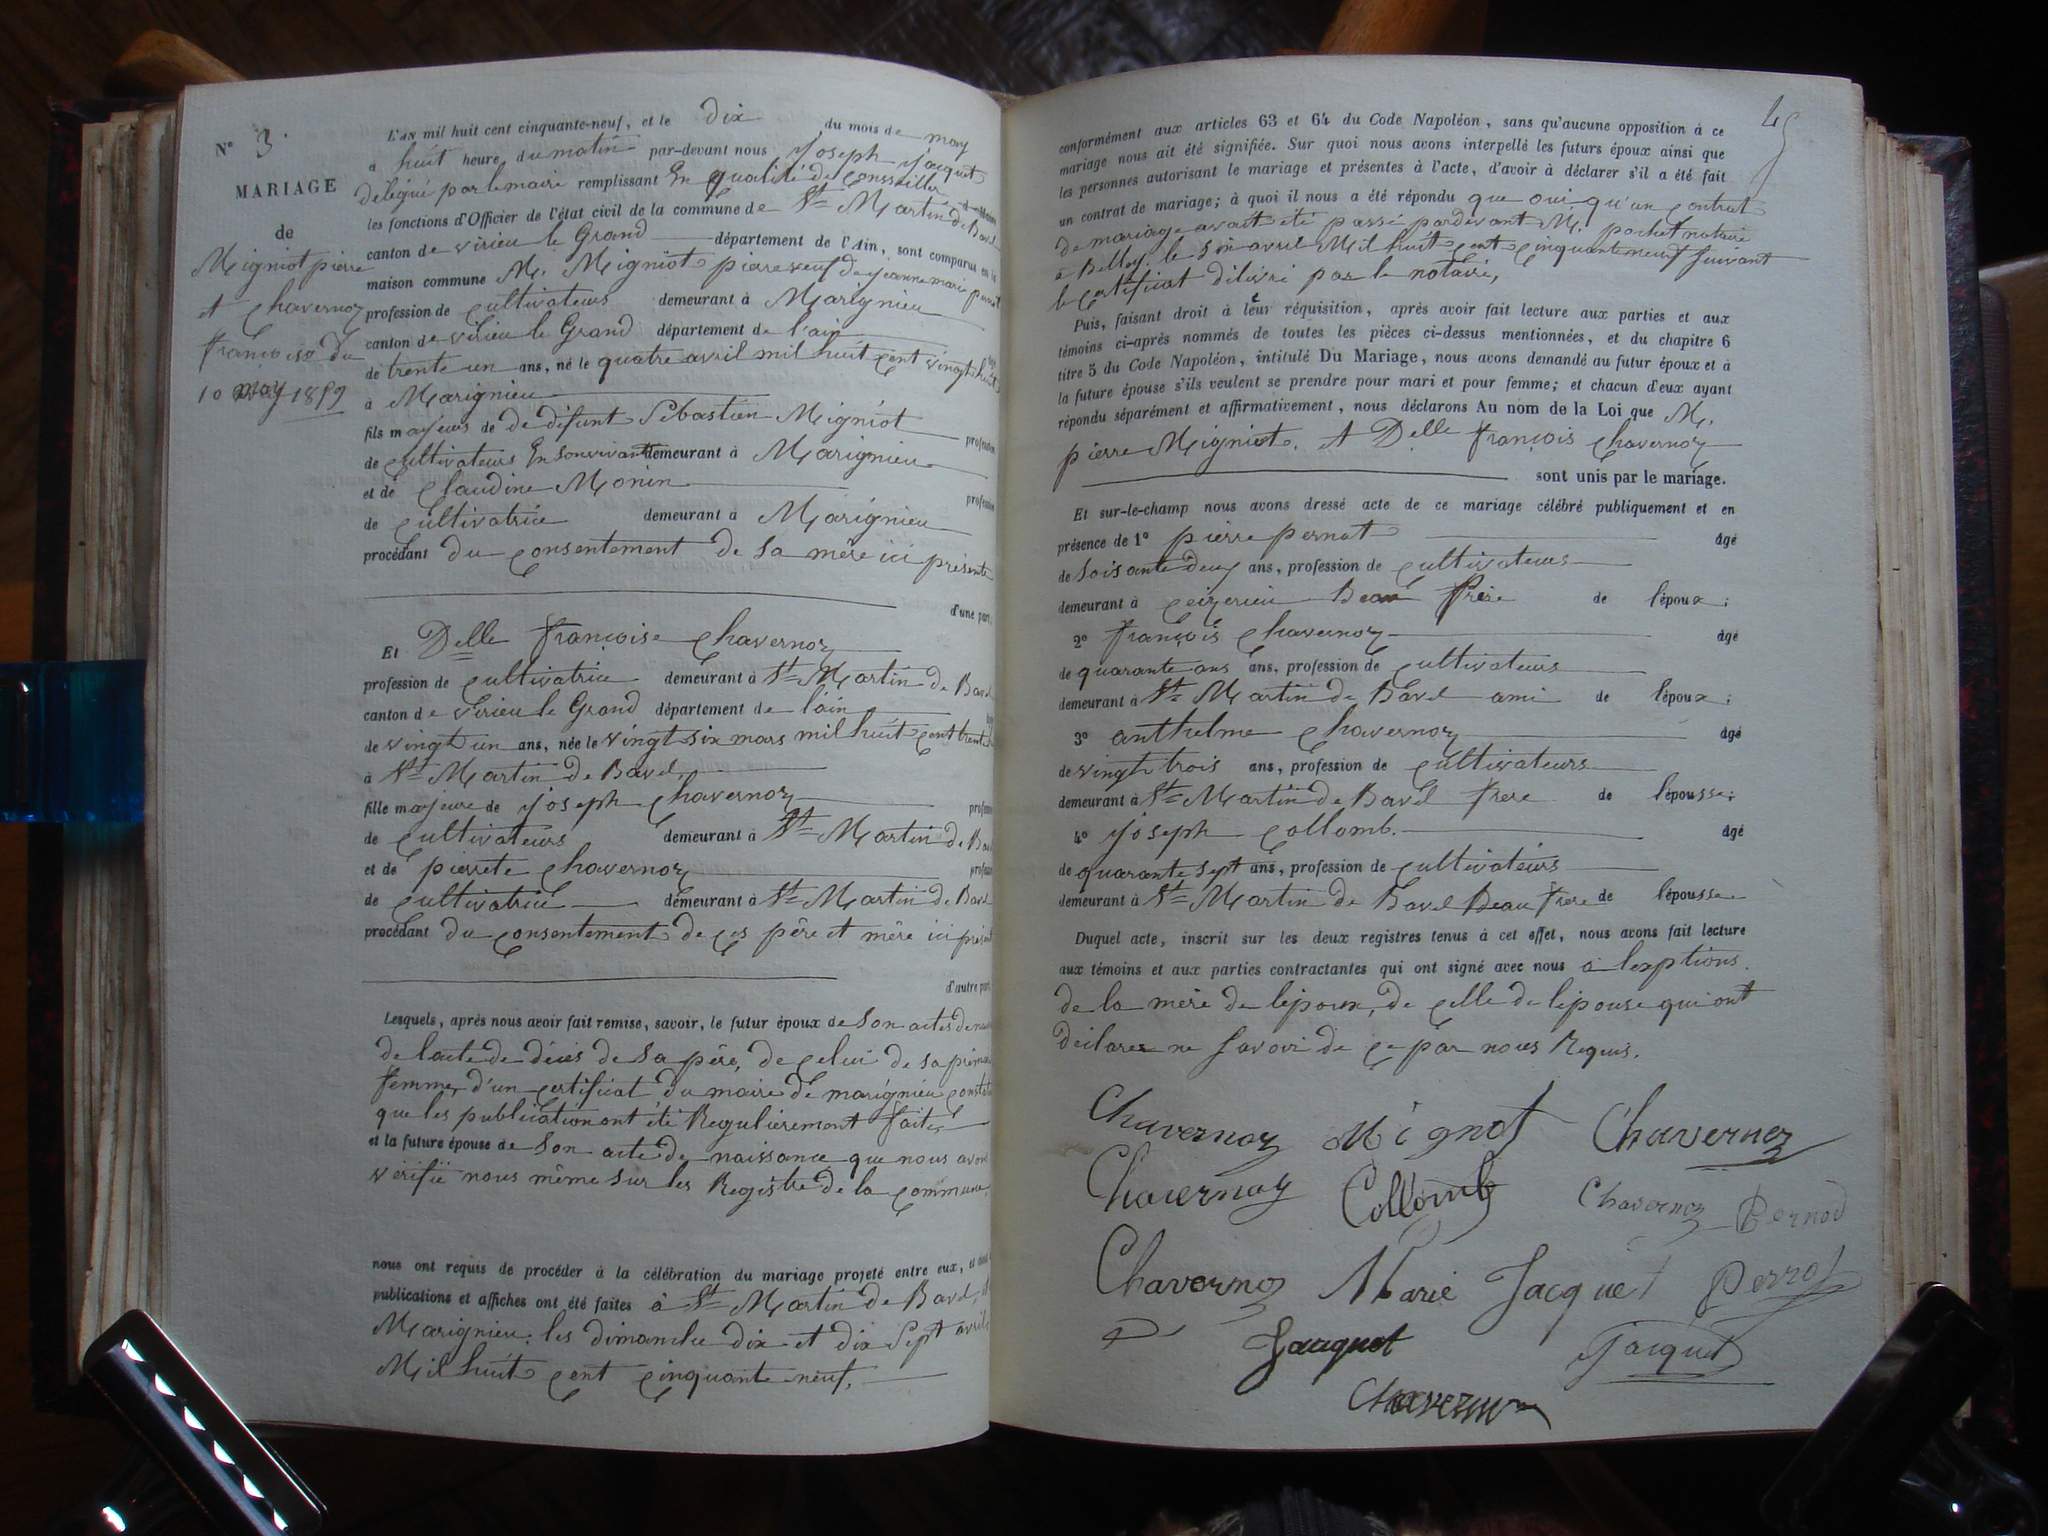 N° 3.
MARIAGE
de
Migniot pierre
et Chavernoz
françoise du
10 may 1859
L'AN mil huit cent cinquante-neuf, et le dix du mois de may
à huit heure du matin par-devant nous Joseph Jacquet
délégué par le maire remplissant En qualité de Consseiller
les fonctions d'Officier de l'état civil de la commune de St Martin de Bavel
canton de virieu le Grand département de l'Ain, sont comparus en la
maison commune M. Migniot pierre veuf de jeanne marie
profession de cultivateurs demeurant à Marignieu
canton de virieu le Grand département de l'ain
de trente un ans, né le quatre avril mil huit cent vingt huit
à Marignieu
fils majeurs de de difunt Sébastien Migniot profession
de cultivateurs En sonvivant demeurant à Marignieu
et de Claudine Monin profession
de cultivatrice demeurant à Marignieu
procédant du consentement de sa mère ici présente
d'une part,
Et Delle françoise Chavernoz
profession de cultivatrice demeurant à St Martin de Bavel
canton de virieu le Grand département de l'ain
de vingt un ans, née le vingt six mars mil huit cent trente
à St Martin de Bavel
fille majeure de Joseph Chavernoz profession
de cultivateurs demeurant à St Martin de Bavel
et de pierrete Chavernoz profession
de cultivatrice demeurant à St Martin de Bavel
procédant du consentement de ces père et mère ici présent
d'autre part.
Lesquels, après nous avoir fait remise, savoir, le futur époux de Son actes de
de l'acte de décès de sa père, de celui de sa première
femme, d'un certificat du maire de marignieu
que les publication ont été Regulièrement faites
et la future épouse de Son acte de naissance que nous avons
vérifié nous même sur les Registre de la commune,
nous ont requis de procéder à la célébration du mariage projeté entre eux, et dont
publications et affiches ont été faites à St Martin de Bavel, et
Marignieu: les dimanche dix et dix Sept avril
Mil huit cent cinquante neuf.
45
conformément aux articles 63 et 64 du Code Napoléon, sans qu'aucune opposition à ce
mariage nous ait été signifiée. Sur quoi nous avons interpellé les futurs époux ainsi que
les personnes autorisant le mariage et présentes à l'acte, d'avoir à déclarer s'il a été fait
un contrat de mariage; à quoi il nous a été répondu que oui qu'un contrat
de mariage avait été passé pardevant M. pochet notaire
à Belley le six avril Mil huit cent cinquante neuf suivant
le certificat délivré par le notaire,
Puis, faisant droit à leur réquisition, après avoir fait lecture aux parties et aux
témoins ci-après nommés de toutes les pièces ci-dessus mentionnées, et du chapitre 6
titre 5 du Code Napoléon, intitulé Du Mariage, nous avons demandé au futur époux et à
la future épouse s'ils veulent se prendre pour mari et pour femme; et chacun d'eux ayant
répondu séparément et affirmativement, nous déclarons Au nom de la Loi que M.
pierre Migniot. Et Delle françois Chavernoz
sont unis par le mariage.
Et sur-le-champ nous avons dressé acte de ce mariage célébré publiquement et en
présence de 1° pierre pernot âgé
de soisante deux ans, profession de cultivateurs
demeurant à Ceizerieu Beau frère de l'époux;
2° françois Chavernoz âgé
de quarante ans ans, profession de cultivateurs
demeurant à St Martin de Bavel ami de l'époux;
3° anthelme Chavernoz âgé
de vingt trois ans, profession de cultivateurs
demeurant à St Martin de Bavel frere de l'épousse;
4° Joseph Collomb. âgé
de quarante sept ans, profession de cultivateurs
demeurant à St Martin de Bavel Beau frere de l'épousse
Duquel acte, inscrit sur les deux registres tenus à cet effet, nous avons fait lecture
aux témoins et aux parties contractantes qui ont signé avec nous à lexptions
de la mère de lépoux, de celle de lépouse qui ont
déclarer ne savoir de ce par nous Requis.
Chavernoz Mignot Chavernoz
Chavernoz Collomb Chavernoz Pernod
Chavernoz Marie Jacquet Perrot
Jacquet Jacquet
Chavernoz